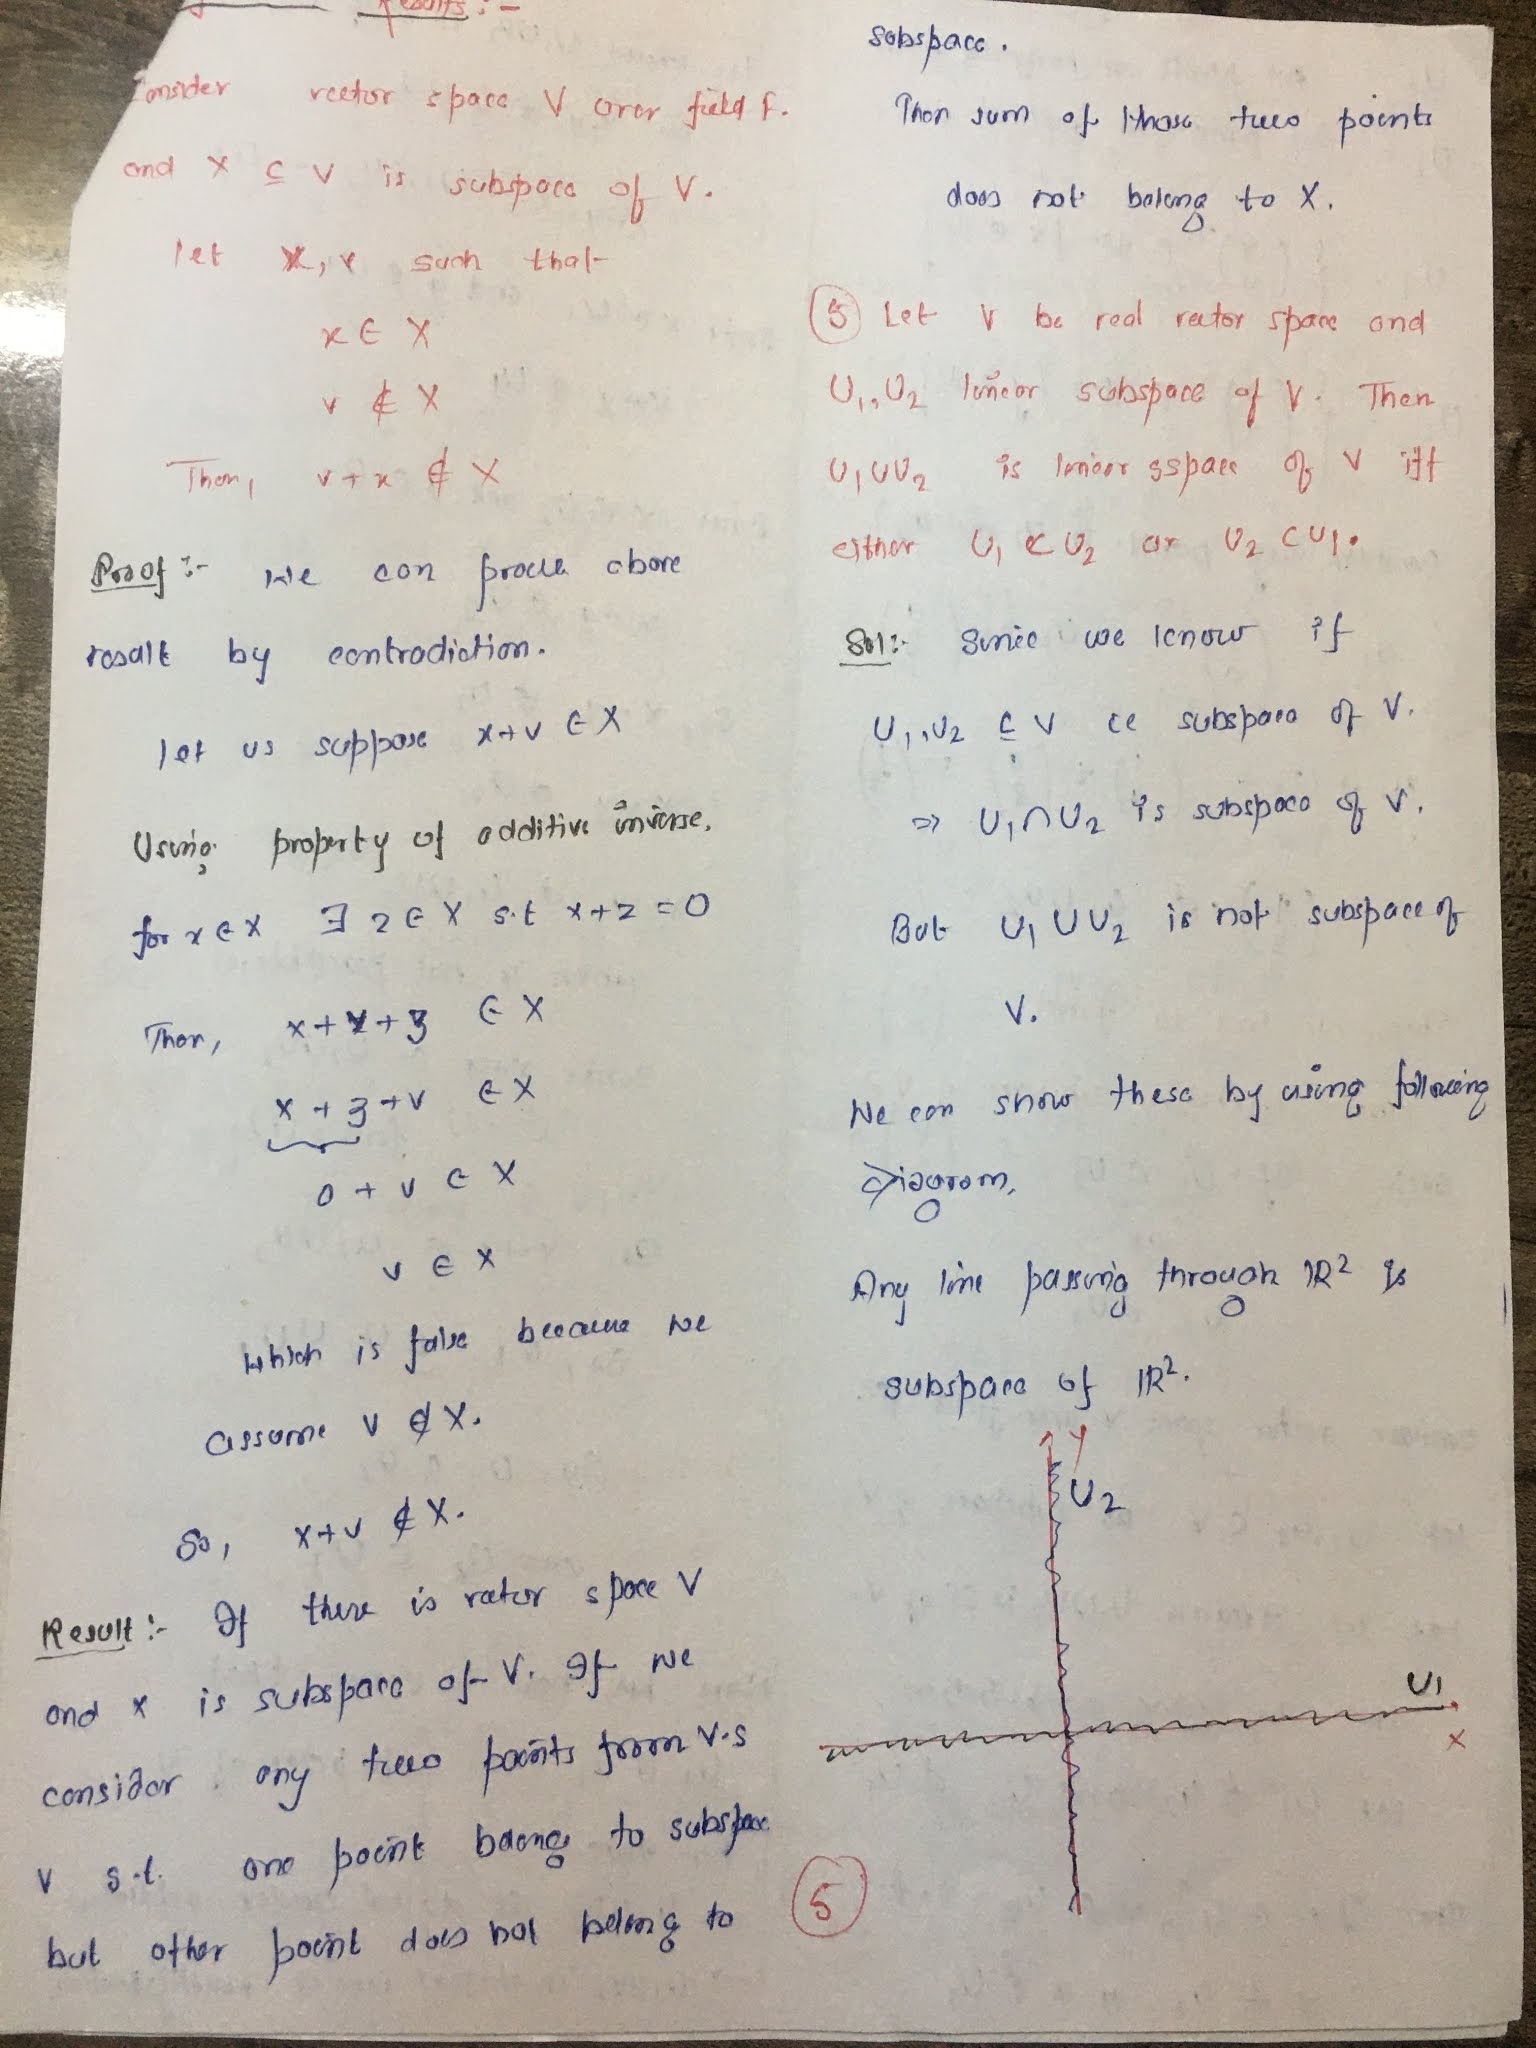 Results :-
Consider vector space V over field F.
and X ⊆ V is subspace of V.
let x, v such that
x ∈ X
v ∉ X
Then, v + x ∉ X
Proof :- We can prove above
result by contradiction.
let us suppose x+v ∈ X
Using property of additive inverse,
for x ∈ X ∃ z ∈ X s.t x+z = 0
Then, x + v + z ∈ X
x + z + v ∈ X
0 + v ∈ X
v ∈ X
which is false because we
assume v ∉ X.
So, x+v ∉ X.
Result :- If there is vector space V
and X is subspace of V. If we
consider any two points from v.s
V s.t. one point belong to subspace
but other point does not belong to
subspace.
Then sum of those two points
does not belong to X.
(5) Let V be real vector space and
U1, U2 linear subspace of V. Then
U1 ∪ U2 is linear sspace of V iff
either U1 ⊂ U2 or U2 ⊂ U1.
Sol :- Since we know if
U1, U2 ⊆ V subspace of V.
⇒ U1 ∩ U2 is subspace of V.
But U1 ∪ U2 is not subspace of
V.
We can show these by using following
diagram,
Any line passing through IR² is
subspace of IR².
Y
U2
U1
X
5